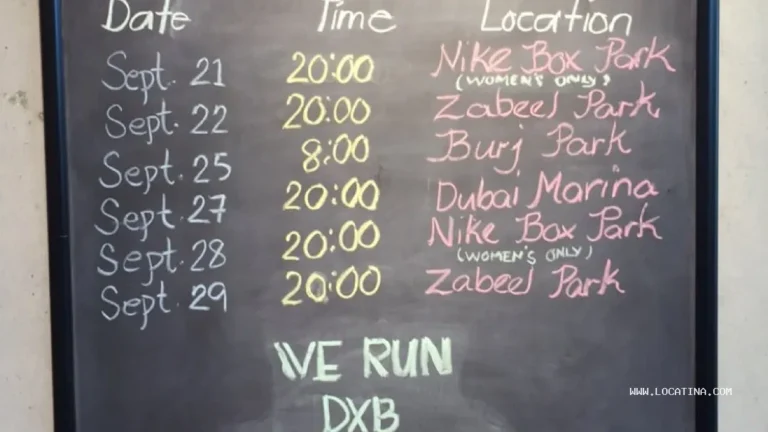 Date Time Location
Sept. 21 20:00 Nike Box Park
(WOMEN'S ONLY)
Sept. 22 20:00 Zabeel Park
Sept. 25 8:00 Burj Park
Sept. 27 20:00 Dubai Marina
Sept. 28 20:00 Nike Box Park
(WOMEN'S ONLY)
Sept. 29 20:00 Zabeel Park
WE RUN
DXB
WWW.LOCATINA.COM